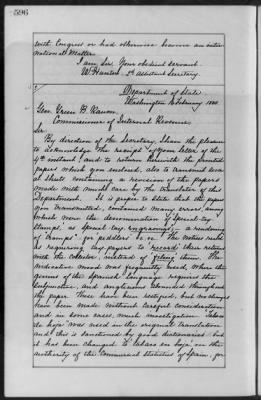 with Congress or had otherwise become an inter
national Matter.
I am Sir Your obedient servant.
W. Hunter. 2d Assistant Secretary.
Department of State
Washington February 1880.
Gen. Green B. Raum
Commissioner of Internal Revenue
Sir
By direction of the Secretary I have the pleasure
to acknowledge the receipt of your letter of the
4th instant and to return herewith the printed
papers which you enclosed, also to transmit sever
al sheets containing a revision of the papers
made with much care by the translator of this
Department. It is proper to state that the paper
you transmitted, contained many errors, among
which were the denomination of special tax
stamps, as special tax engravings, a rendering
of "tramps" for peddlers &c The notice rules
as requiring tax payers to "record" their return
with the collector instead of "filing" them. The
indicative mood was frequently used, when the
genius of the Spanish language requires the
subjunctive, and anglicisms abounded throughout
the paper. These have been rectified, but no changes
have been made without careful consideration
and in some cases, much investigation "tabaco
de hoja" was used in the original translation
and this is sanctioned by good dictionaries but
it has been changed to "tabaco en hoja" on the
authority of the Commercial statistics of Spain, for